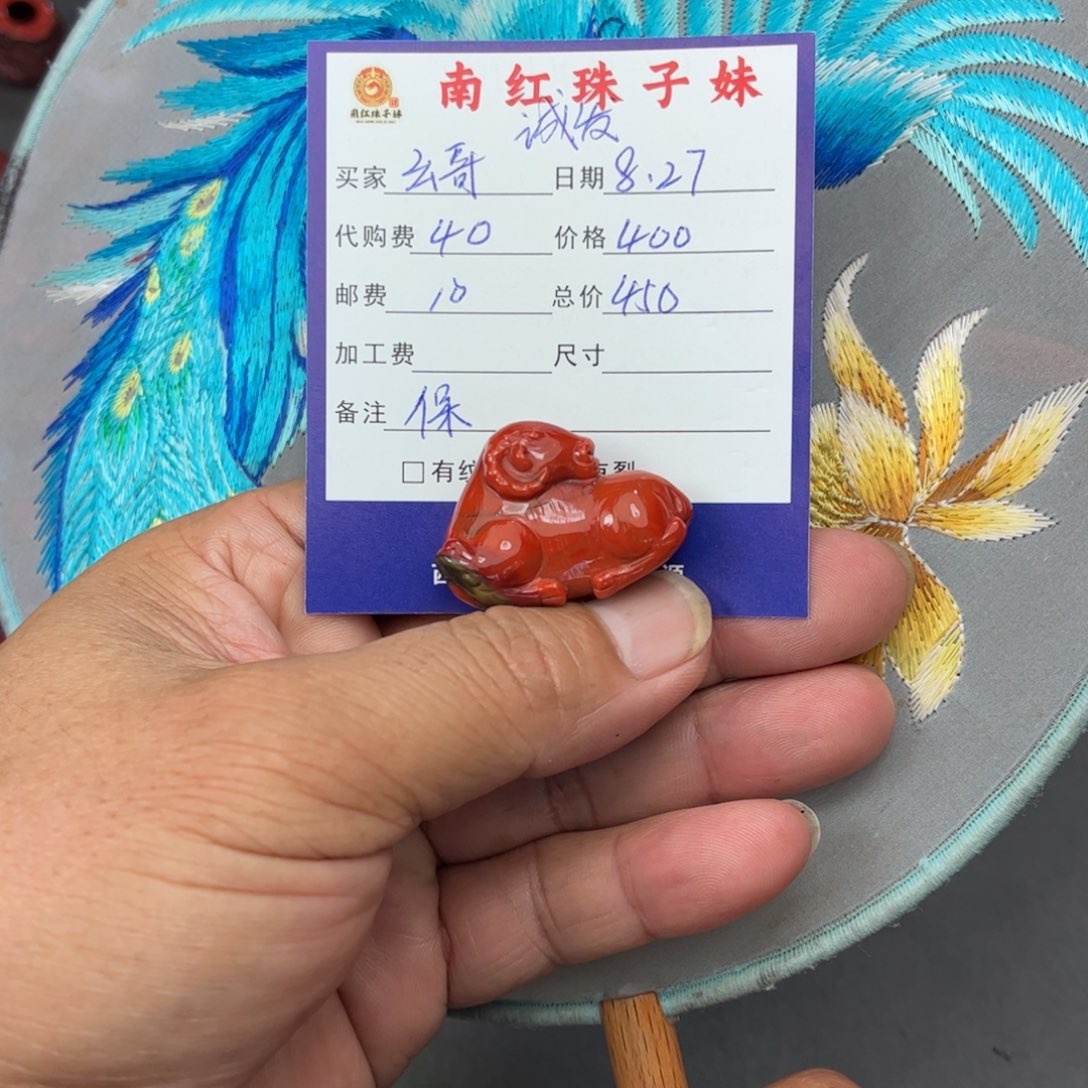 南红珠子妹
南红珠子妹
诚发
买家 云哥 日期 8.27
代购费 40 价格 400
邮费 10 总价 450
加工费 尺寸
备注 保
□有纹 有裂
西 源